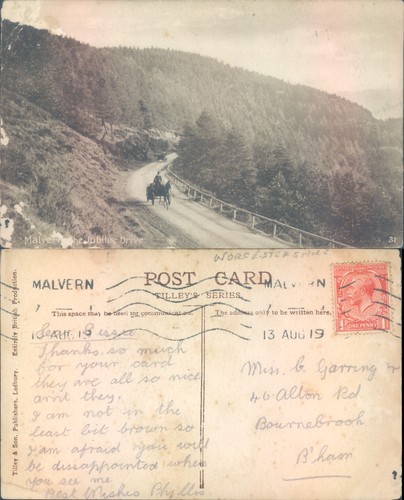 Malvern, the Jubilee Drive
31
WORCESTERSHIRE
MALVERN
POST CARD
MALVERN
TILLEY'S SERIES.
This space may be used for communication.
The address only to be written here.
13 AUG 19
13 AUG 19
ONE PENNY
Tilley & Son, Publishers, Ledbury. Entirely British Production.
Dear
Thanks so much
for your card
they are all so nice
arn't they.
I am not in the
least bit brown so
I am afraid you will
be disappointed when
you see me
Best Wishes Phyllis
Miss. C. Garring
46 Alton Rd
Bournebrook
B'ham